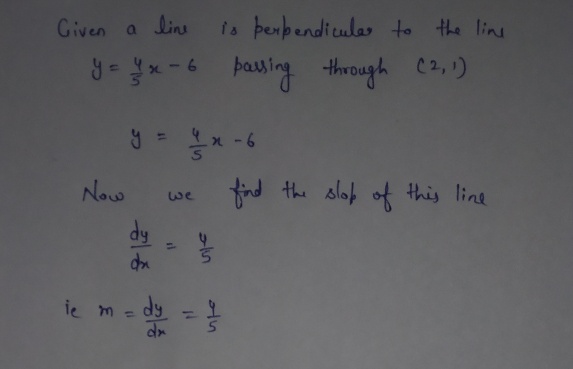 Given a line is perpendicular to the line
y = 4/5 x - 6 passing through (2,1)
y = 4/5 x - 6
Now we find the slop of this line
dy/dx = 4/5
ie m = dy/dx = 4/5